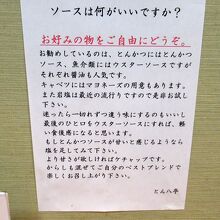 ソースは何がいいですか？
お好みの物をご自由にどうぞ。
お勧めしているのは、とんかつにはとんかつ
ソース、魚介類にはウスターソースですが
それぞれ醤油も人気です。
キャベツにはマヨネーズの用意もあります。
また岩塩は最近の流行りですので是非お試し
下さい。
迷ったら一切れずつ違う味にするのもいいし
最後のひと口をウスターソースにすれば、軽
い食後感になると思います。
もしとんかつソースが甘いと感じるようなら
塩を足してみて下さい。
より甘さが欲しければケチャップです。
からしも混ぜてご自分のベストブレンドで
楽しくお召し上がり下さい。
とん八亭